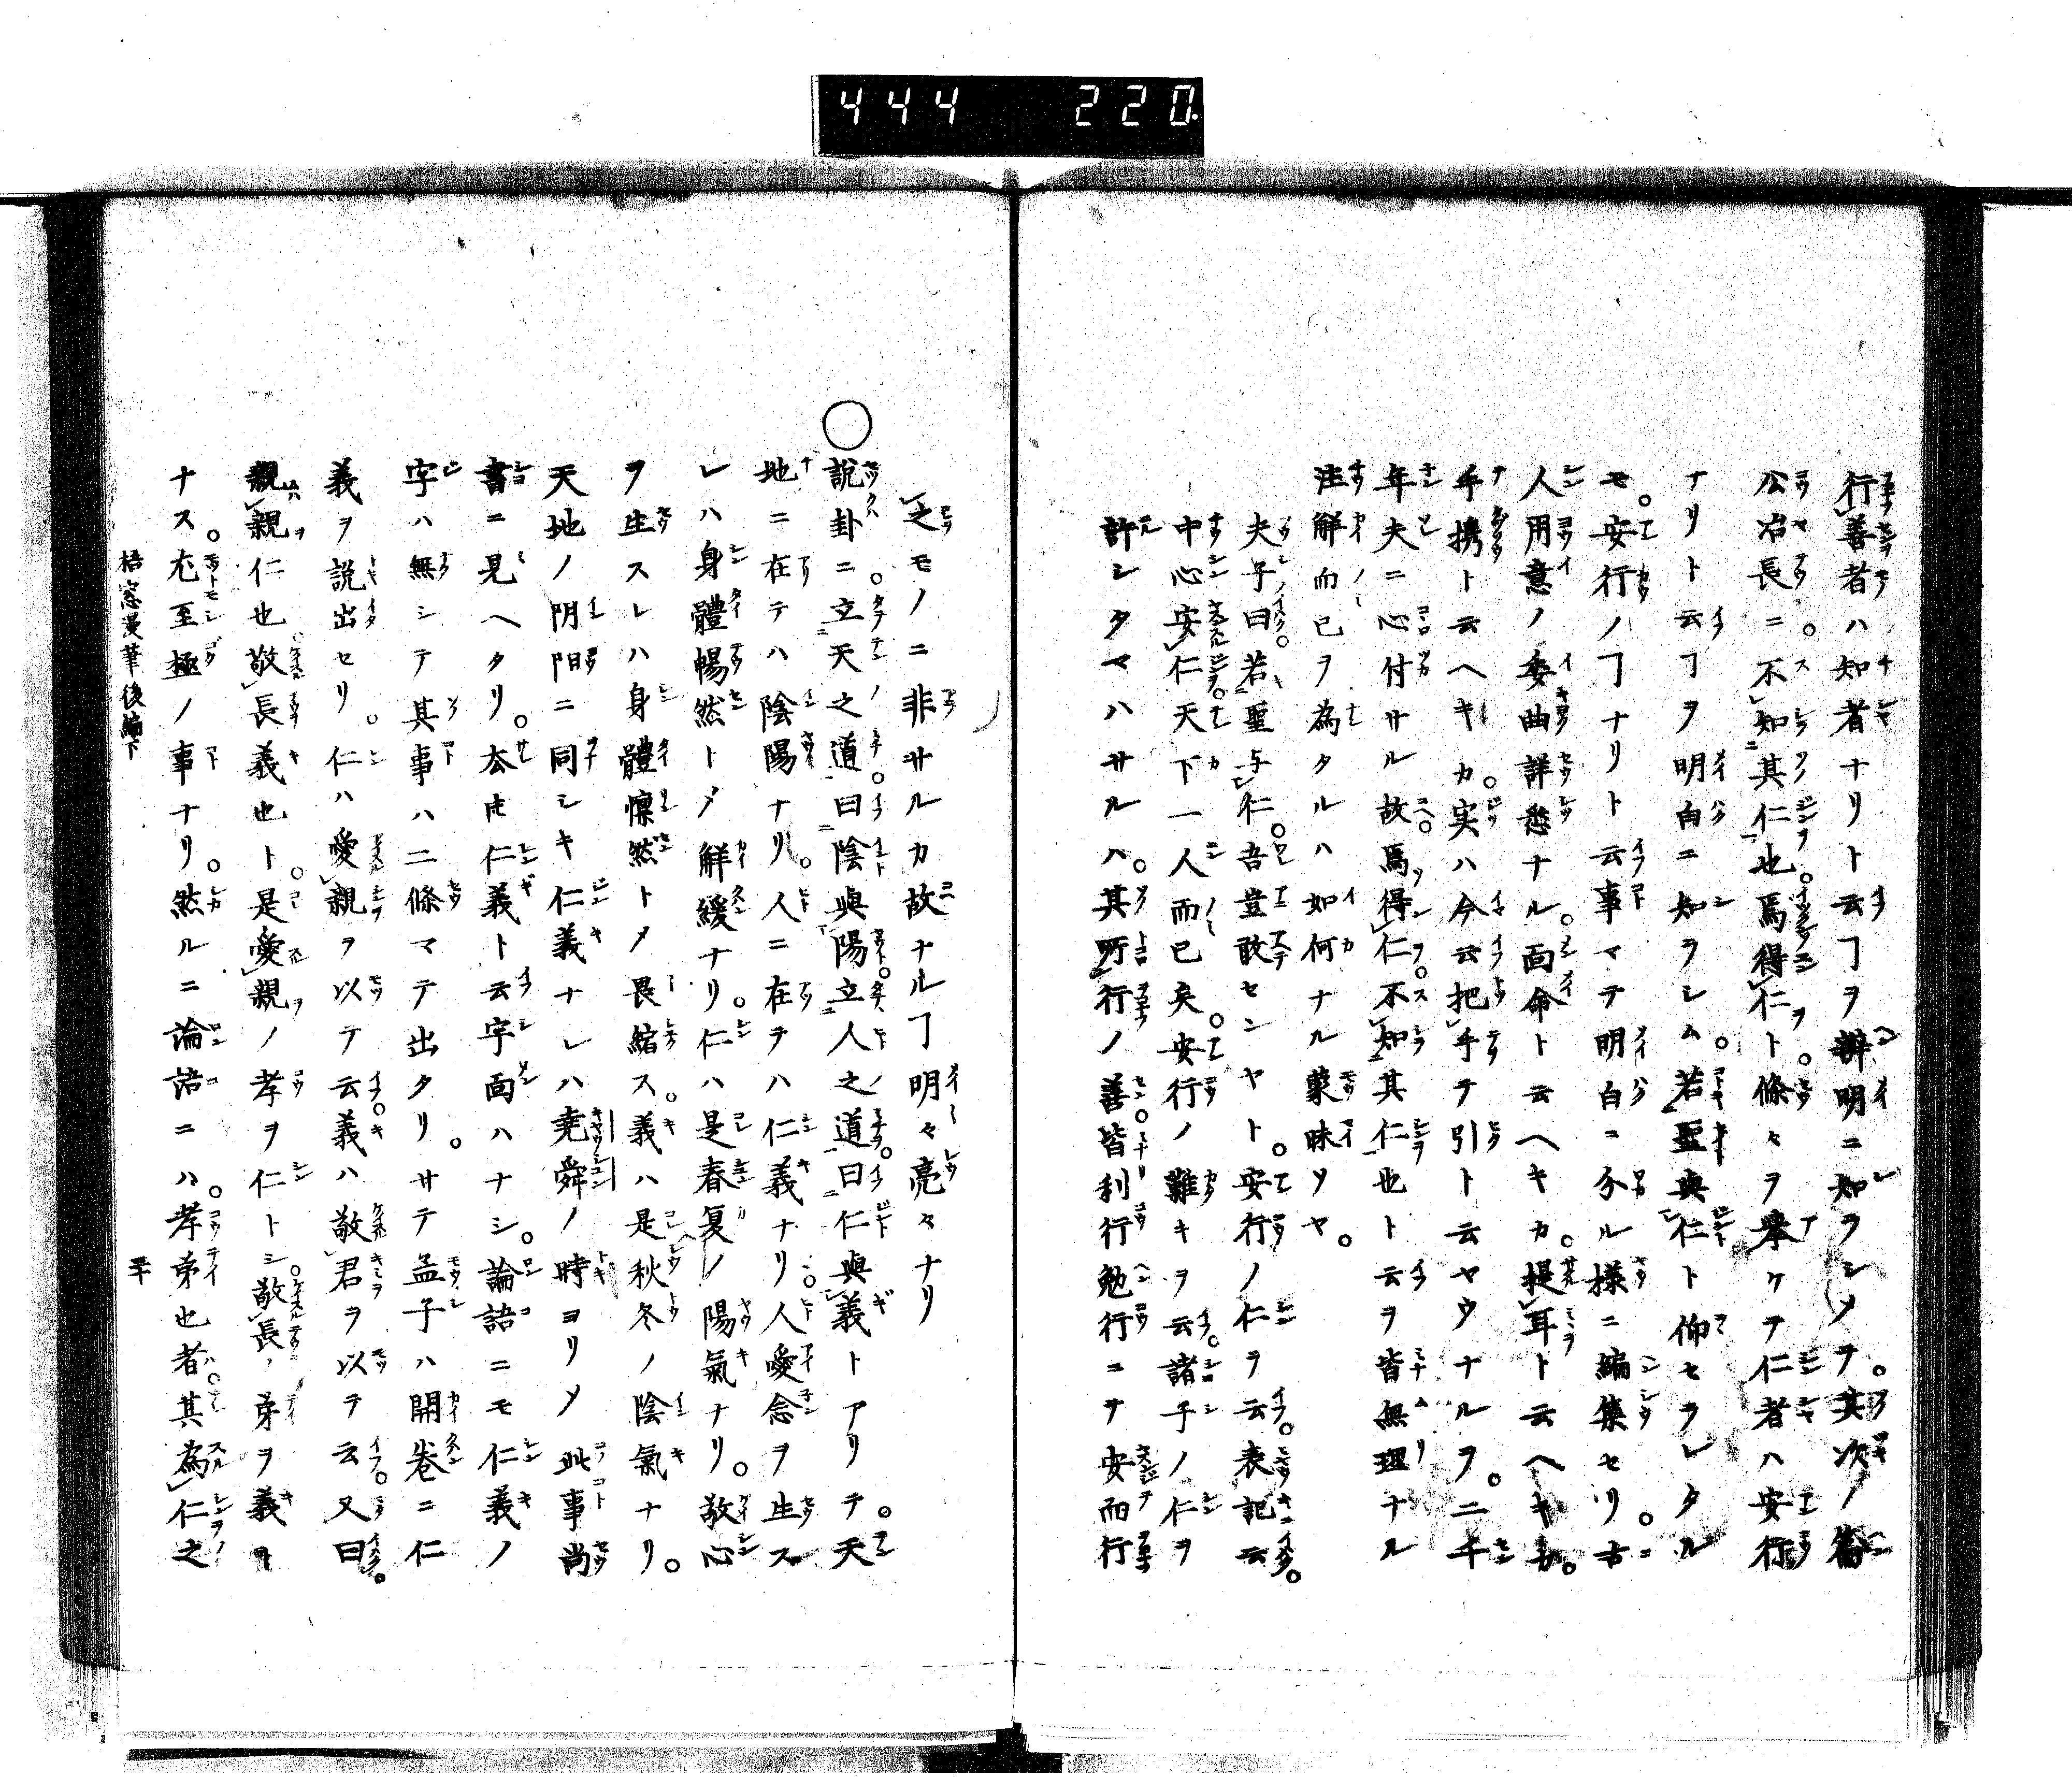 444 220
行善者ハ知者ナリト云ヿヲ辨明ニ知ラシメテ。其次ノ篇
公冶長ニ。不知其仁也。焉得仁ト。條々ヲ擧ケテ仁者ハ安行
ナリト云ヿヲ明白ニ知ラシム。若聖與仁ト仰セラレタル
モ。安行ノヿナリト云事マテ明白ニ分ル様ニ編集セリ。古
人用意ノ委曲詳悉ナル。面命ト云ヘキカ。提耳ト云ヘキカ。
手携ト云ヘキカ。実ハ今云把手テ引ト云ヤウナルヲ。二千
年夫ニ心付サル故。焉得仁。不知其仁也ト云ヲ皆無理ナル
注解而已ヲ為タルハ如何ナル蒙昧ソヤ。
夫子曰。若聖与仁。吾豈敢センヤト。安行ノ仁ヲ云。表記云。
中心安仁。天下一人而已矣。安行ノ難キヲ云。諸子ノ仁ヲ
許シタマハサルハ。其所行ノ善。皆利行勉行ニテ安而行
之モノニ非サルカ故ナルヿ明々亮々ナリ
○説卦ニ。立天之道。曰陰與陽。立人之道。曰仁與義トアリテ。天
地ニ在テハ陰陽ナリ。人ニ在テハ仁義ナリ。人愛念ヲ生ス
レハ身體暢然トメ解緩ナリ。仁ハ是春夏ノ陽氣ナリ。敬心
ヲ生スレハ身體懍然トメ畏縮ス。義ハ是秋冬ノ陰氣ナリ。
天地ノ阴阳ニ同シキ仁義ナレハ尭舜ノ時ヨリメ此事尚
書ニ見ヘタリ。厺𪜈仁義ト云字面ハナシ。論語ニモ仁義ノ
字ハ無シテ其事ハ二條マテ出タリ。サテ孟子ハ開巻ニ仁
義ヲ説出セリ。仁ハ愛親ヲ以テ云。義ハ敬君ヲ以テ云。又曰。
親親仁也。敬長義也ト。是愛親ノ孝ヲ仁トシ。敬長ノ弟ヲ義ト
ナス。尤至極ノ事ナリ。然ルニ論語ニハ。孝弟也者。其為仁之
梧窓漫筆後編下